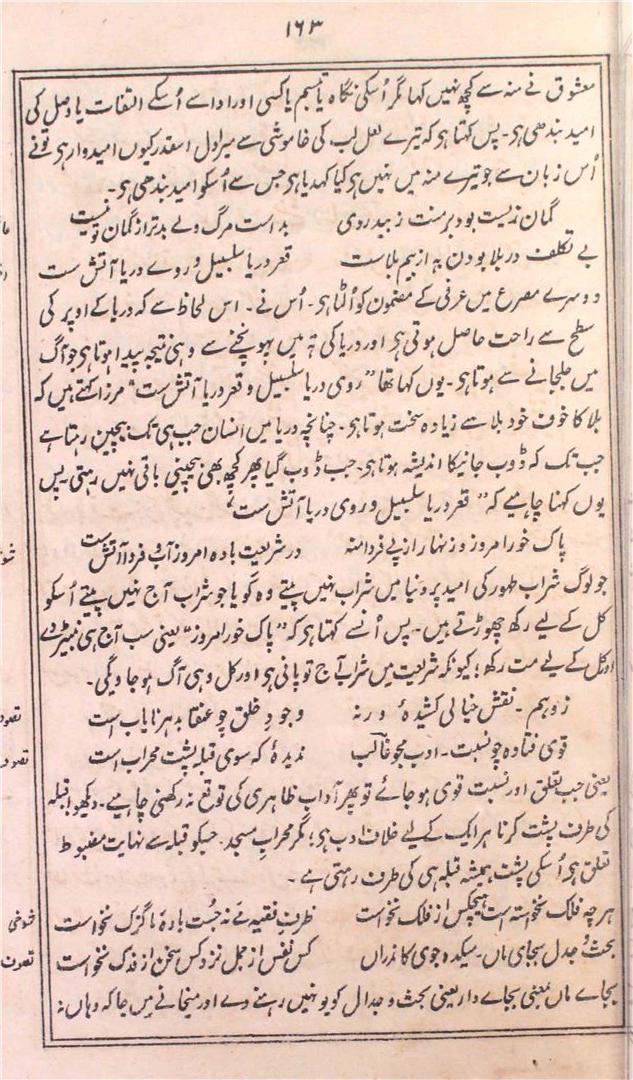 ۱۶۳
معشوق نے منہ سے کچھ نہیں کہا مگر اُسکی نگاہ یا تبسم یا کسی اور ادا سے اُسکے التفات یا وصل کی
امید بندھی ہو۔ پس کہتا ہو کہ تیرے لعل لب کی خاموشی سے میرا دل اسقدر کیوں امیدوار ہو تونے
اُس زبان سے جو تیرے منہ میں نہیں ہو کیا کہدیا ہو جس سے اُسکو امید بندھی ہو۔
گمان زیست بود بر منت ز بیدردی بد است مرگ ولے بدتر از گمان تو نیست
بے تکلف در بلا بودن بہ از بیم بلاست قعر دریا سلسبیل و روے دریا آتش ست
دوسرے مصرع میں عرفی کے مضمون کو اُلٹا ہو۔ اُس نے۔ اس لحاظ سے کہ دریا کے اوپر کی
سطح سے راحت حاصل ہوتی ہو اور دریا کی تہ میں پہونچنے سے وہی نتیجہ پیدا ہوتا ہو جو آگ
میں جلجانے سے ہوتا ہو۔ یوں کہا تھا ”روی دریا سلسبیل و قعر دریا آتش ست“ مرزا کہتے ہیں کہ
بلا کا خوف خود بلا سے زیادہ سخت ہوتا ہو۔ چنانچہ دریا میں انسان جب ہی تک بیچین رہتا ہے
جب تک کہ ڈوب جانیکا اندیشہ ہوتا ہو۔ جب ڈوب گیا پھر کچھ بھی بیچینی باقی نہیں رہتی۔ پس
یوں کہنا چاہیے کہ ”قعر دریا سلسبیل و روی دریا آتش ست“
پاک خور امروز و زنہار از پے فردا منہ در شریعت بادہ امروز آب و فردا آتش ست
جو لوگ شراب طہور کی امید پر دنیا میں شراب نہیں پیتے وہ گویا جو شراب آج نہیں پیتے اُسکو
کل کے لیے رکھ چھوڑتے ہیں۔ پس اُنسے کہتا ہو کہ ”پاک خور امروز“ یعنی سب آج ہی نبیڑ دے
اور کل کے لیے مت رکھ؛ کیونکہ شریعت میں شراب آج تو پانی ہو اور کل وہی آگ ہو جاویگی۔
ز وہم۔ نقش خیالی کشیدۂ ورنہ وجودِ خلق چو عنقا بدہر نایاب است
قوی فتادہ چو نسبت۔ ادب مجو غالب ندیدۂ کہ سوی قبلہ پشت محراب است
یعنی جب تعلق اور نسبت قوی ہو جائے تو پھر آداب ظاہری کی توقع نہ رکھنی چاہیے۔ دیکھو! قبلہ
کی طرف پشت کرنا ہر ایک کے لیے خلاف ادب ہو؛ مگر محراب مسجد۔ جسکو قبلہ سے نہایت مضبوط
تعلق ہو اُسکی پشت ہمیشہ قبلہ ہی کی طرف رہتی ہے۔
ہرچہ فلک نخواستہ است ہیچکس از فلک نخواست ظرف فقیہ مے نہ جُست بادۂ ما گزک نخواست
بحث و جدل بجای ماں۔ میکدہ جوی کاندراں کس نفس از جمل نزد کس سخن از فدک نخواست
بجاے ماں بمعنی بجاے دار یعنی بحث و جدال کو یونہیں رہنے دے اور میخانے میں جا کہ وہاں نہ
شوخی
تصوف